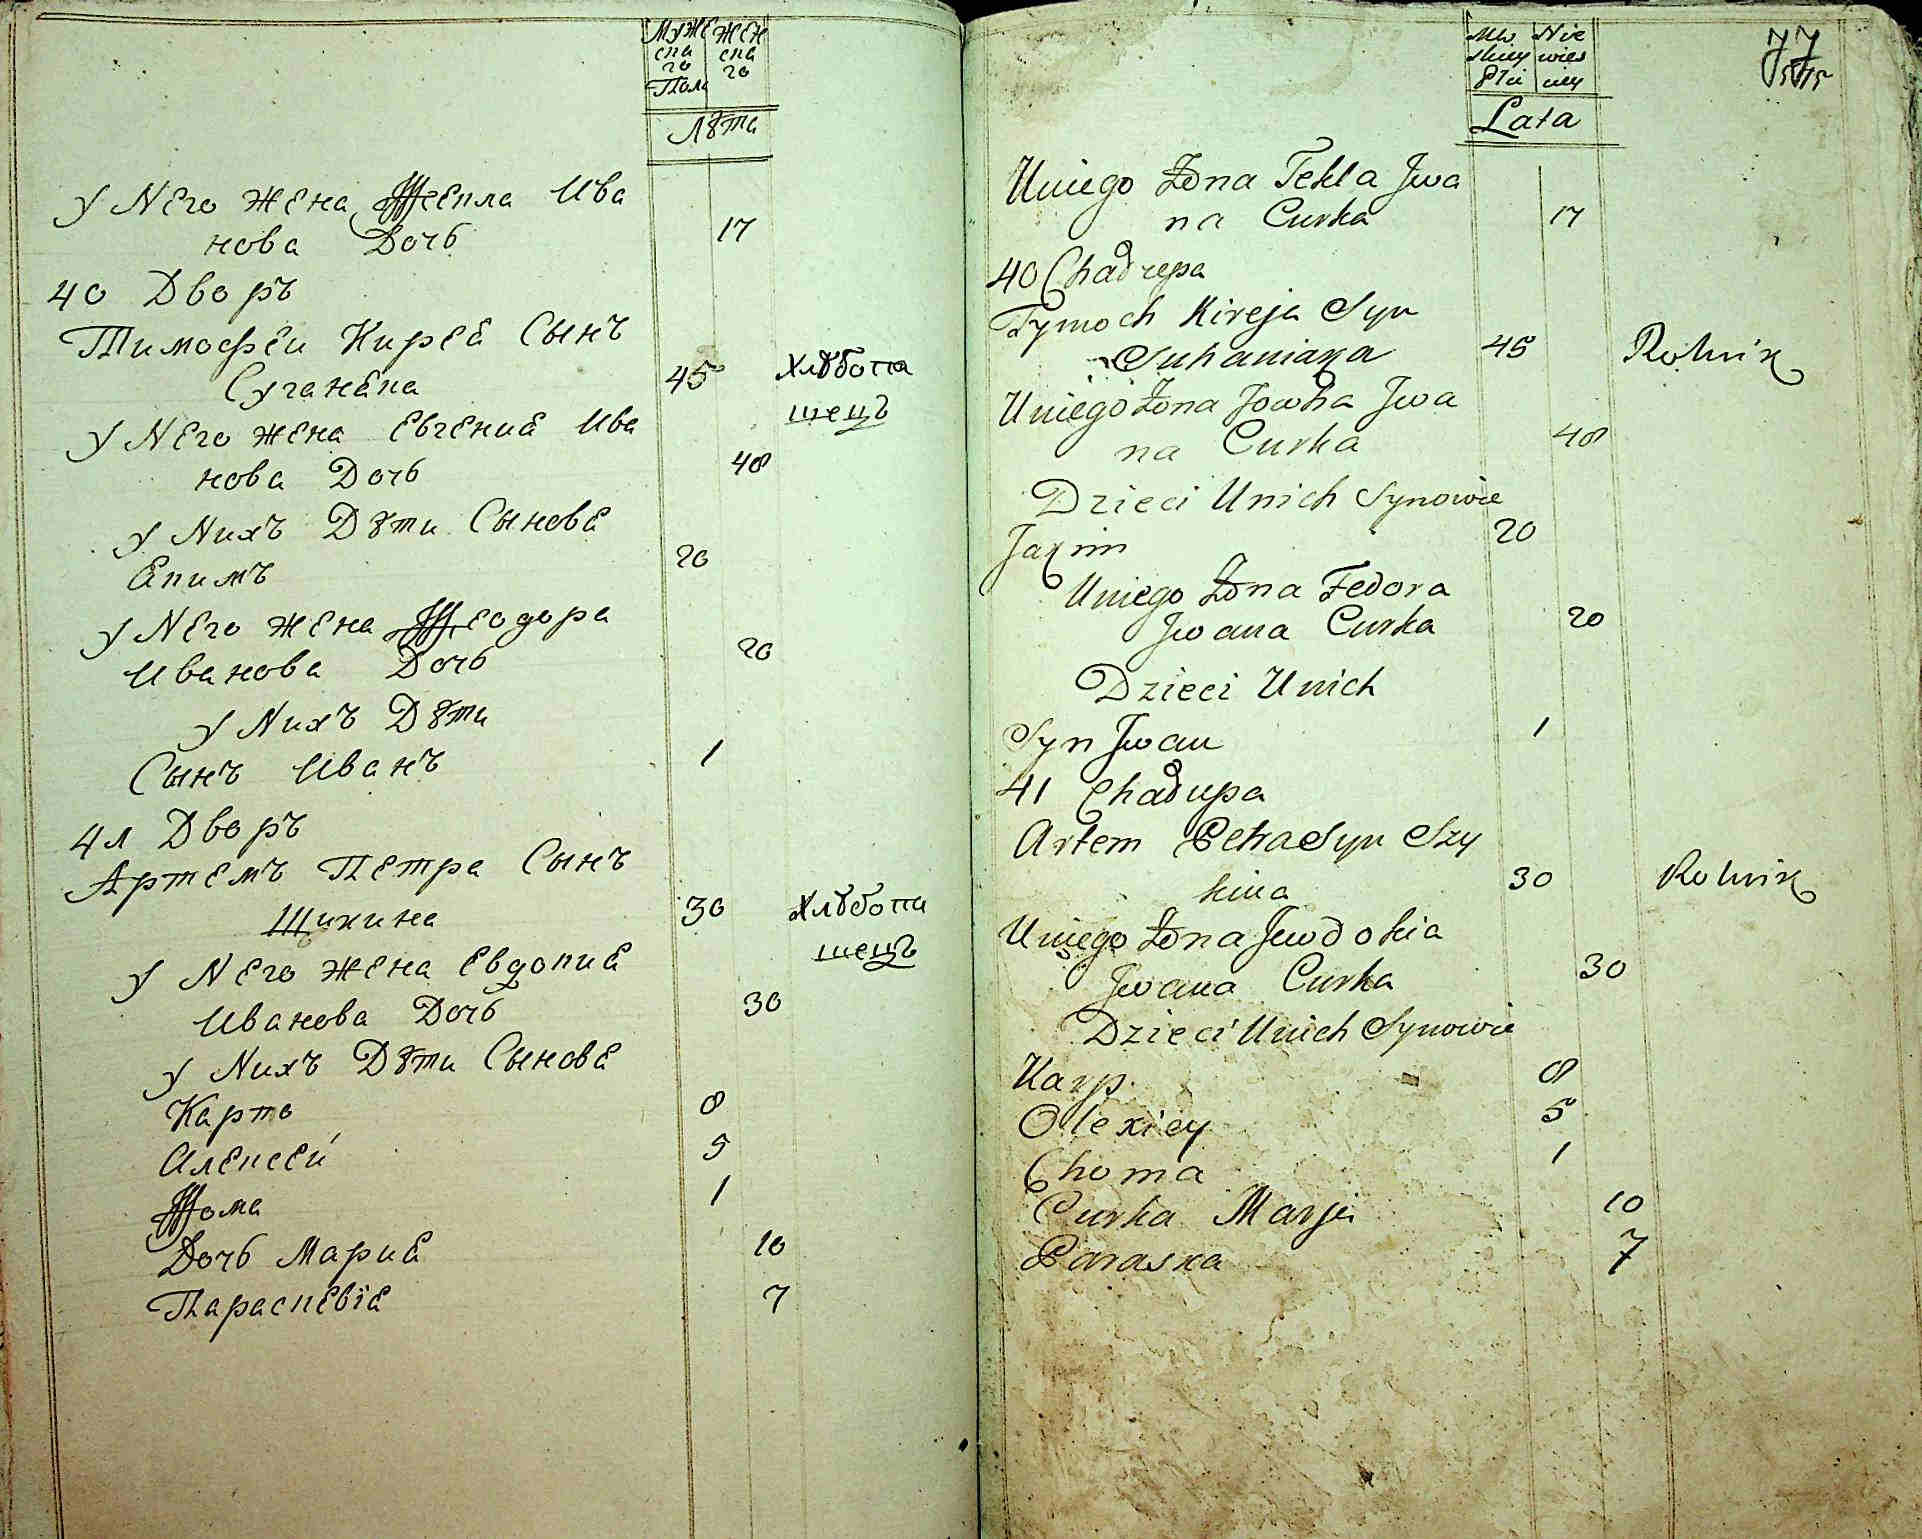 Муже Жен
ска ска
го го
Пола
Лѣта
У Него Жена Ѳекла Ива
нова Дочь 17
40 Дворъ
Тимофеи Кирея Сынъ
Суганяка 45 Хлѣбопа
шецъ
У Него Жена Евгения Ива
нова Дочь 48
У Нихъ Дѣти Сыновя
Якимъ 20
У Него Жена Ѳеодора
Иванова Дочь 20
У Нихъ Дѣти
Сынъ Иванъ 1
41 Дворъ
Артемъ Петра Сынъ
Шикина 30 Хлѣбопа
шецъ
У Него Жена Евдокия
Иванова Дочь 30
У Нихъ Дѣти Сыновя
Карпъ 8
Алексей 5
Ѳома 1
Дочь Мария 10
Параскевія 7
Mę Nie
skiey wies
Płci ciey
Lata
U niego Żona Tekla Jwa
na Curka 17
40 Chałupa
Tymoch Kireja Syn
Suhaniaka 45 Rolnik
U niego Żona Jowha Jwa
na Curka 48
Dzieci U nich Synowie
Jakim 20
U niego Żona Fedora
Jwana Curka 20
Dzieci U nich
Syn Jwan 1
41 Chałupa
Artem Petra Syn Szy
kina 30 Rolnik
U niego Żona Jewdokia
Jwana Curka 30
Dzieci U nich Synowie
Karp 8
Olexiey 5
Choma 1
Curka Marja 10
Paraska 7